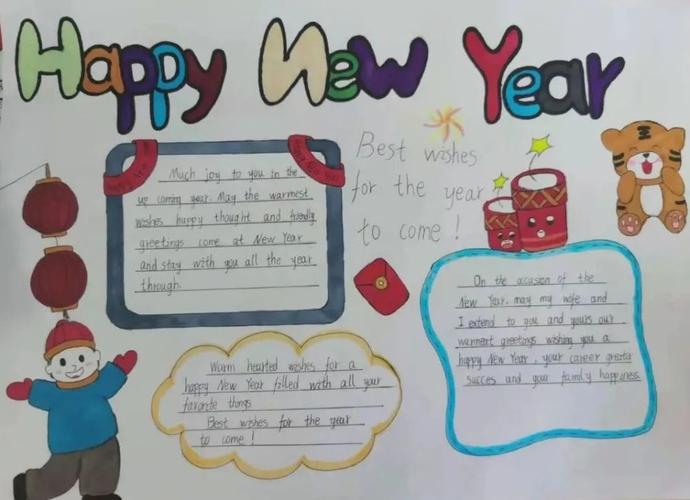 Happy New Year
Much joy to you in the
up coming year. May the warmest
wishes happy thought and friendly
greetings come at New Year
and stay with you all the year
through.
Best wishes
for the year
to come!
Warm hearted wishes for a
happy New Year filled with all your
favorite things
Best wishes for the year
to come!
On the occasion of the
New Year, may my wife and
I extend to you and yours our
warmest greetings wishing you a
happy New Year, your career greater
succes and your family happiness